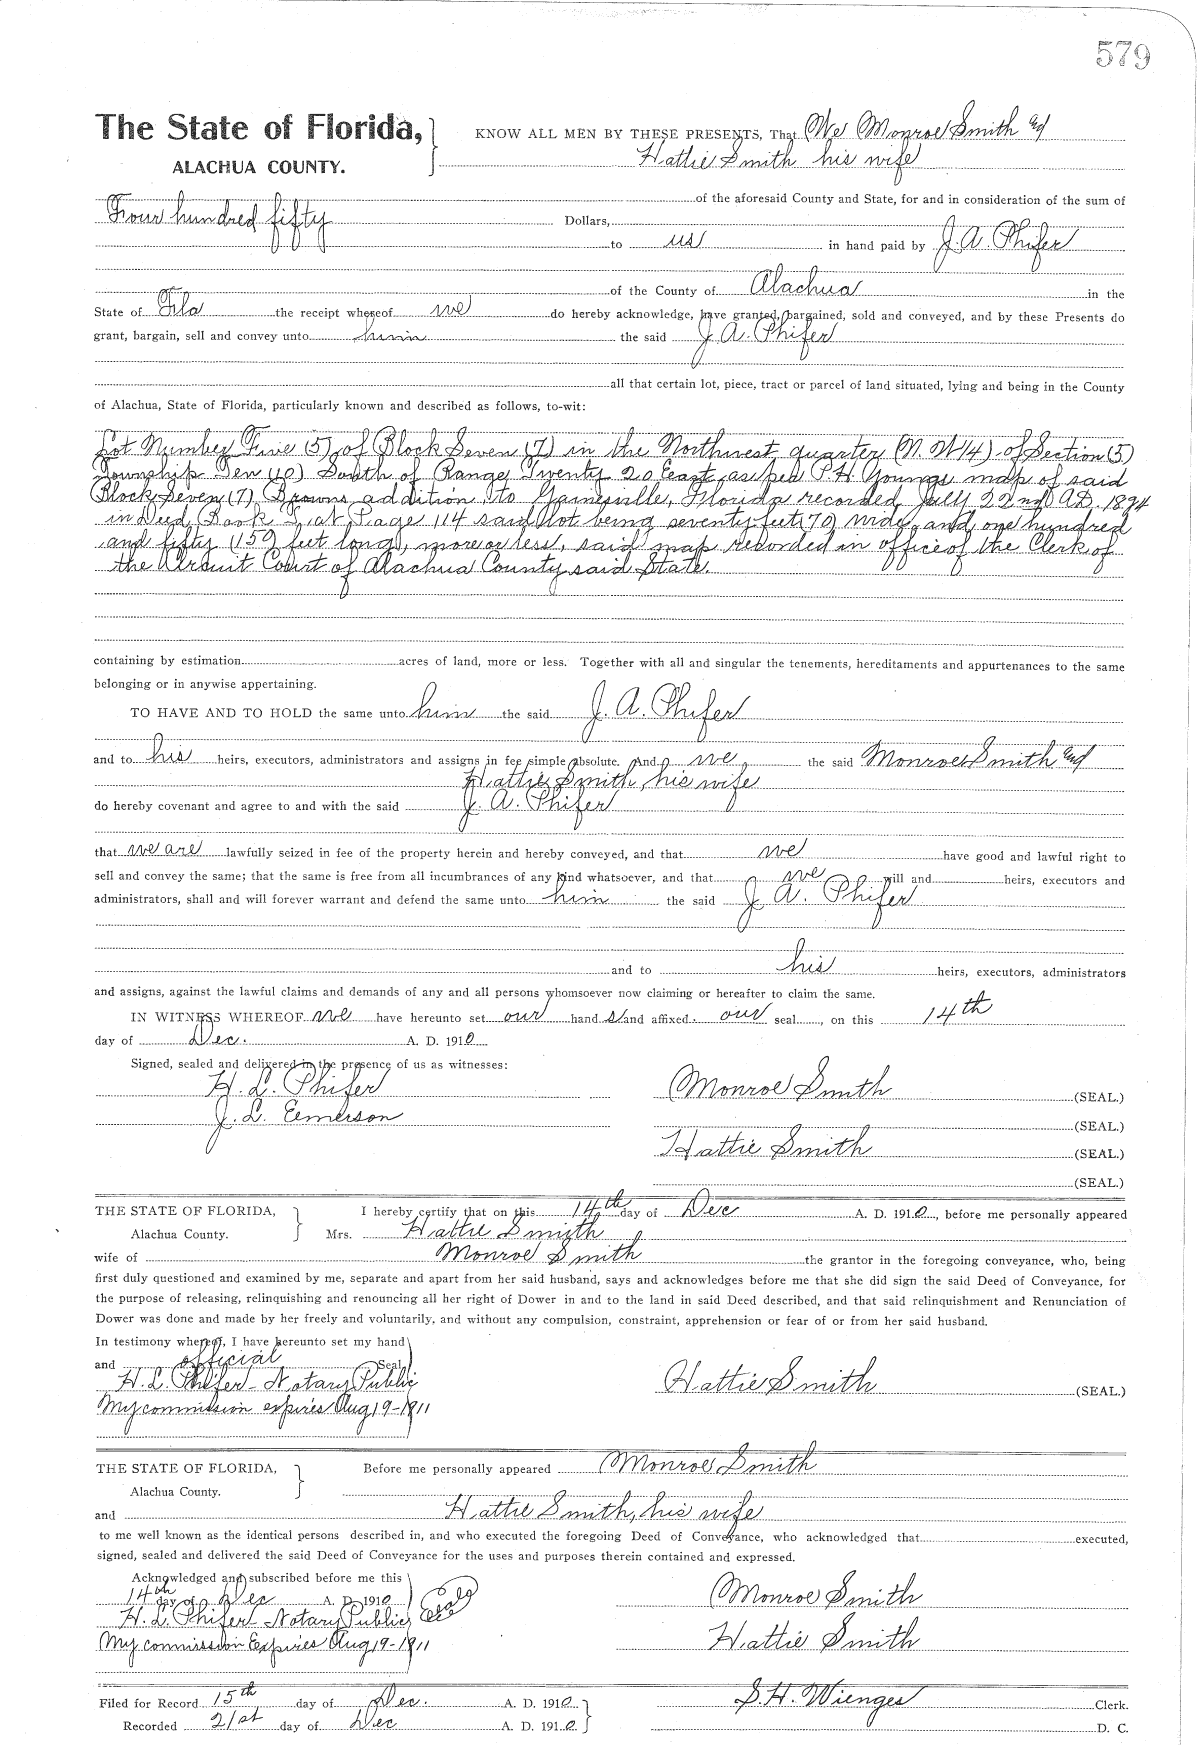 579
The State of Florida,
ALACHUA COUNTY.
KNOW ALL MEN BY THESE PRESENTS, That We Monroe Smith and
Hattie Smith his wife
of the aforesaid County and State, for and in consideration of the sum of
Four hundred fifty Dollars,
to us in hand paid by J. A. Phifer
of the County of Alachua in the
State of Fla the receipt whereof we do hereby acknowledge, have granted, bargained, sold and conveyed, and by these Presents do
grant, bargain, sell and convey unto him the said J. A. Phifer
all that certain lot, piece, tract or parcel of land situated, lying and being in the County
of Alachua, State of Florida, particularly known and described as follows, to-wit:
Lot Number Five (5) of Block Seven (7) in the Northwest quarter (N. W 1/4) of Section (5)
Township Ten (10) South of Range Twenty 20 East, as per P. H. Youngs map of said
Block Seven (7) Browns addition to Gainesville, Florida recorded July 22nd A.D. 1894
in Deed Book at Page 114 said lot being seventy feet (70) wide, and one hundred
and fifty (150) feet long, more or less, said map recorded in office of the Clerk of
the Circuit Court of Alachua County said State.
containing by estimation acres of land, more or less. Together with all and singular the tenements, hereditaments and appurtenances to the same
belonging or in anywise appertaining.
TO HAVE AND TO HOLD the same unto him the said J. A. Phifer
and to his heirs, executors, administrators and assigns in fee simple absolute. And we the said Monroe Smith and
Hattie Smith, his wife
do hereby covenant and agree to and with the said J. A. Phifer
that we are lawfully seized in fee of the property herein and hereby conveyed, and that we have good and lawful right to
sell and convey the same; that the same is free from all incumbrances of any kind whatsoever, and that we will and heirs, executors and
administrators, shall and will forever warrant and defend the same unto him the said J. A. Phifer
and to his heirs, executors, administrators
and assigns, against the lawful claims and demands of any and all persons whomsoever now claiming or hereafter to claim the same.
IN WITNESS WHEREOF we have hereunto set our hand s and affixed our seal , on this 14th
day of Dec. A. D. 1910
Signed, sealed and delivered in the presence of us as witnesses:
H. L. Phifer
J. L. Eemerson
Monroe Smith (SEAL.)
(SEAL.)
Hattie Smith (SEAL.)
(SEAL.)
THE STATE OF FLORIDA,
Alachua County.
I hereby certify that on this 14th day of Dec A. D. 1910, before me personally appeared
Mrs. Hattie Smith
wife of Monroe Smith the grantor in the foregoing conveyance, who, being
first duly questioned and examined by me, separate and apart from her said husband, says and acknowledges before me that she did sign the said Deed of Conveyance, for
the purpose of releasing, relinquishing and renouncing all her right of Dower in and to the land in said Deed described, and that said relinquishment and Renunciation of
Dower was done and made by her freely and voluntarily, and without any compulsion, constraint, apprehension or fear of or from her said husband.
In testimony whereof, I have hereunto set my hand
and official Seal
H. L. Phifer Notary Public
My commission expires Aug 19-1911
Hattie Smith (SEAL.)
THE STATE OF FLORIDA,
Alachua County.
Before me personally appeared Monroe Smith
and Hattie Smith, his wife
to me well known as the identical persons described in, and who executed the foregoing Deed of Conveyance, who acknowledged that executed,
signed, sealed and delivered the said Deed of Conveyance for the uses and purposes therein contained and expressed.
Acknowledged and subscribed before me this
14th day of Dec A. D. 1910
H. L. Phifer Notary Public
My commission Expires Aug 19-1911
Monroe Smith
Hattie Smith
Filed for Record 15th day of Dec. A. D. 1910.
Recorded 21st day of Dec A. D. 1910.
S. H. Wienges Clerk.
D. C.